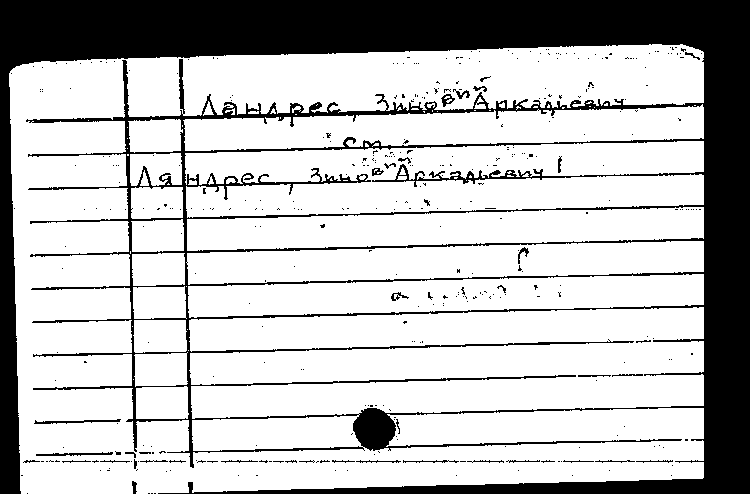 Ландрес, Зиновий Аркадьевич
см.:
Ляндрес, Зиновий Аркадьевич